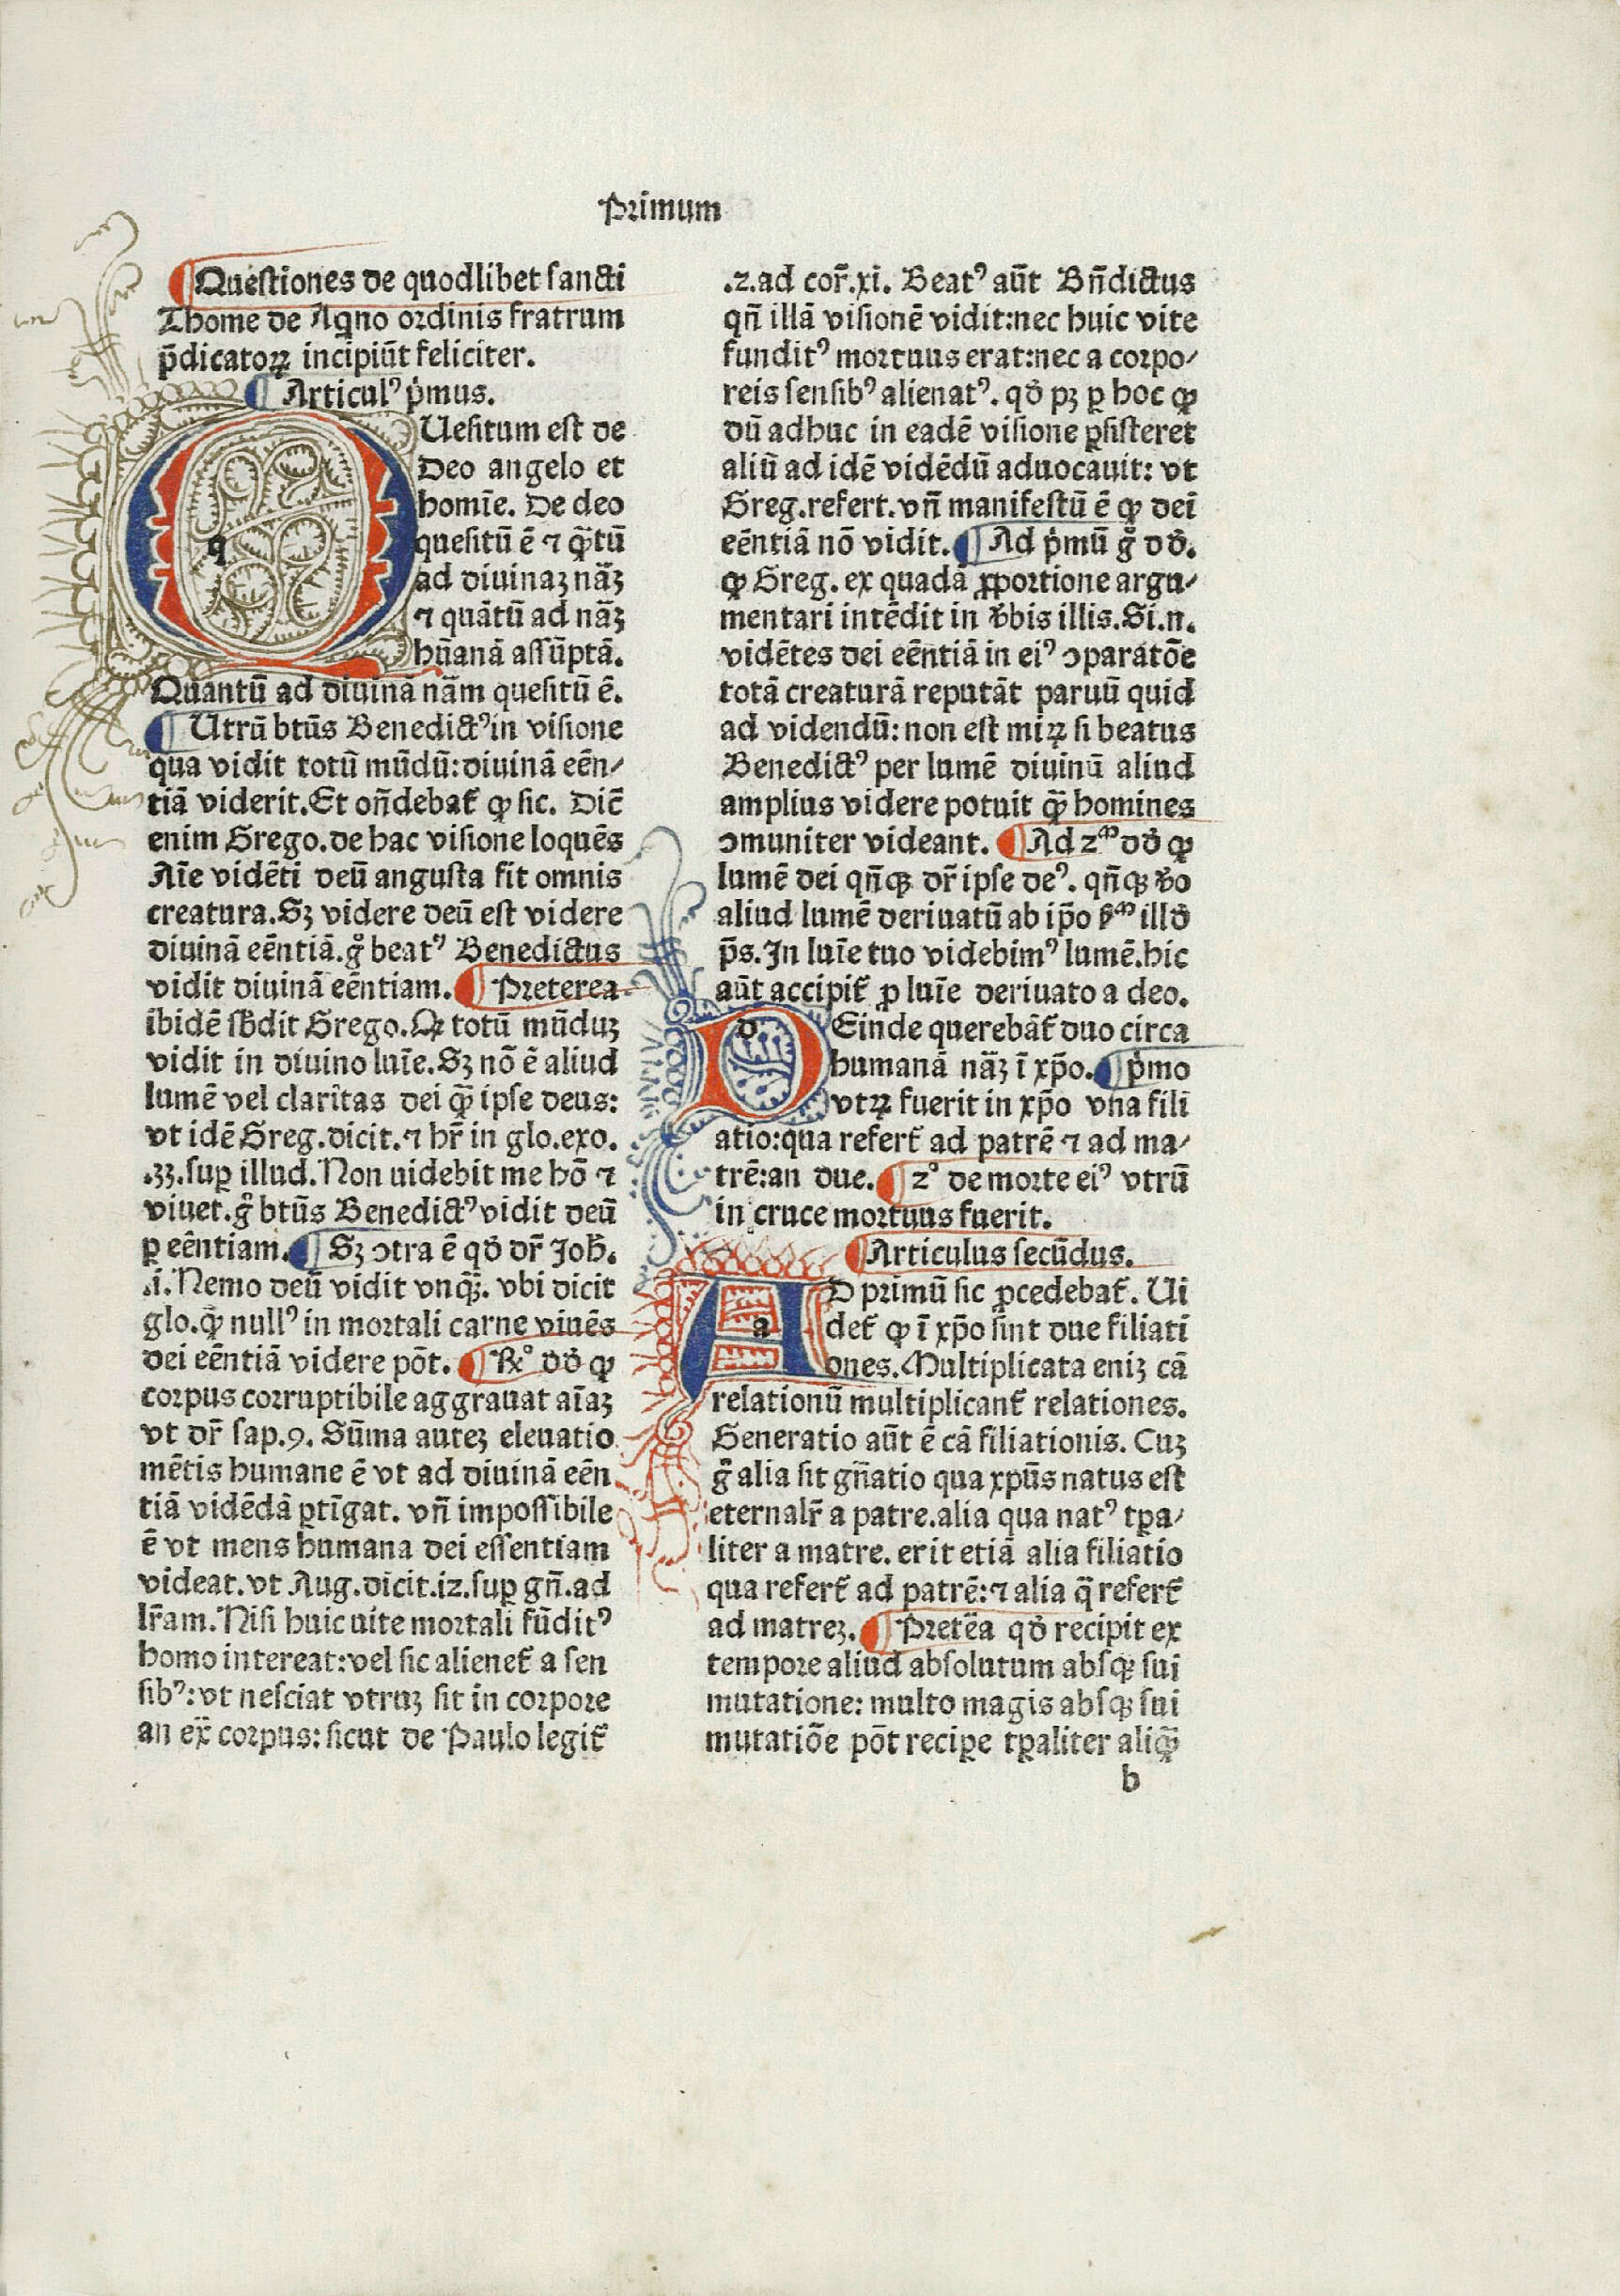 Primum
Questiones de quodlibet sancti
Thome de Aqͥno ordinis fratrum
p̄dicatoꝝ incipiūt feliciter.
¶ Articulꝰ pͥmus.
QUesitum est de
Deo angelo et
homīe. De deo
quesitū ē ⁊ qᷓtū
ad diuinaꝫ nāꝫ
⁊ quātū ad nāꝫ
hūanā assūptā.
Quantū ad diuinā nām quesitū ē.
¶ Utrū btūs Benedictꝰ in visione
qua vidit totū mūdū: diuinā eēn⸗
tiā viderit. Et on̄debat᷑ ꝙ sic. Dic̄
enim Grego. de hac visione loquēs
Aīe vidēti deū angusta fit omnis
creatura. Sꝫ videre deū est videre
diuinā eēntiā. gͦ beatꝰ Benedictus
vidit diuinā eēntiam. ¶ Preterea
ibidē sb̄dit Grego. Ꝙ totū mūduꝫ
vidit in diuino luīe. Sꝫ nō ē aliud
lumē vel claritas dei qᷓ ipse deus:
vt idē Greg. dicit. ⁊ hr̄ in glo. exo.
.33. suꝑ illud. Non uidebit me hō ⁊
viuet. gͦ btūs Benedictꝰ vidit deū
ꝑ eēntiam. ¶ Sꝫ ↄtra ē qd̄ dr̄ Joh̄.
.i. Nemo deū vidit vnqᷓꝫ. vbi dicit
glo. ꝙ nullꝰ in mortali carne viuēs
dei eēntiā videre pōt. ¶ ℞ͦ dd̄ ꝙ
corpus corruptibile aggrauat aīaꝫ
vt dr̄ sap. 9. Sūma auteꝫ eleuatio
mētis humane ē vt ad diuinā eēn
tiā vidēdā ꝑtīgat. vn̄ impossibile
ē vt mens humana dei essentiam
videat. vt Aug. dicit. 12. suꝑ gn̄. ad
lr̄am. Nisi huic uite mortali fūditꝰ
homo intereat: vel sic alienet᷑ a sen
sibꝰ: vt nesciat vtruꝫ sit in corpore
an ex̄ corpus: sicut de Paulo legit᷑
.2. ad cor̄. xi. Beatꝰ aūt Bn̄dictus
qn̄ illā visionē vidit: nec huic vite
funditꝰ mortuus erat: nec a corpo⸗
reis sensibꝰ alienatꝰ. qd̄ pꝫ ꝑ hoc ꝙ
dū adhuc in eadē visione ꝑsisteret
aliū ad idē vidēdū aduocauit: vt
Greg. refert. vn̄ manifestū ē ꝙ dei
eēntiā nō vidit. ¶ Ad pͥmū gͦ dd̄.
ꝙ Greg. ex quadā ꝓportione argu⸗
mentari intēdit in v̄bis illis. Si. n.
vidētes dei eēntiā in eiꝰ ↄparatōe
totā creaturā reputāt paruū quid
ad videndū: non est miꝝ si beatus
Benedictꝰ per lumē diuinū aliud
amplius videre potuit qᷓ homines
ↄmuniter videant. ¶ Ad 2ᵐ dd̄ ꝙ
lumē dei qn̄qꝫ dr̄ ipse deꝰ. qn̄qꝫ v̄o
aliud lumē deriuatū ab ip̄o ẜᵐ illd̄
ps̄. In luīe tuo videbimꝰ lumē. hic
aūt accipit᷑ ꝓ luīe deriuato a deo.
DEinde querebāt᷑ duo circa
humanā nāꝫ ī xp̄o. ¶ pͥmo
vtꝝ fuerit in xp̄o vna fili
atio: qua refert᷑ ad patrē ⁊ ad ma⸗
trē: an due. ¶ 2ͦ de morte eiꝰ vtrū
in cruce mortuus fuerit.
¶ Articulus secūdus.
AD primū sic ꝓcedebat᷑. Ui
det᷑ ꝙ ī xp̄o sint due filiati
ones. Multiplicata eniꝫ cā
relationū multiplicant᷑ relationes.
Generatio aūt ē cā filiationis. Cuꝫ
gͦ alia sit gn̄atio qua xpūs natus est
eternalr̄ a patre. alia qua natꝰ tꝑa⸗
liter a matre. erit etiā alia filiatio
qua refert᷑ ad patrē: ⁊ alia qᷓ refert᷑
ad matreꝫ. ¶ Pretēa qd̄ recipit ex
tempore aliud absolutum absqꝫ sui
mutatione: multo magis absqꝫ sui
mutatiōe pōt reciꝑe tꝑaliter aliqᷓ
b